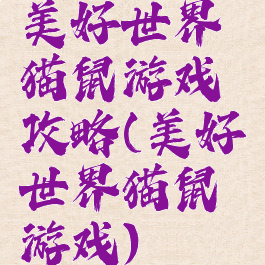 美好世界
猫鼠游戏
攻略(美好
世界猫鼠
游戏)